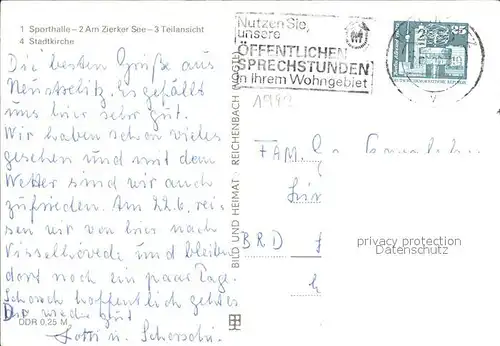 1 Sporthalle – 2 Am Zierker See – 3 Teilansicht
4 Stadtkirche
Die besten Grüße aus
Neustrelitz. Es gefällt
uns hier sehr gut.
Wir haben schon vieles
gesehen und mit dem
Wetter sind wir auch
zufrieden. Am 22.6. rei-
sen wir von hier nach
Visselhövede und bleiben
dort noch ein paar Tage.
hoffentlich geht es
Dir wieder gut
DDR 0,25 M
Lotti u.
BILD UND HEIMAT REICHENBACH (VOGTL)
Nutzen Sie,
unsere
ÖFFENTLICHEN
SPRECHSTUNDEN
in Ihrem Wohngebiet
25
FAM.
BRD
privacy protection
Datenschutz